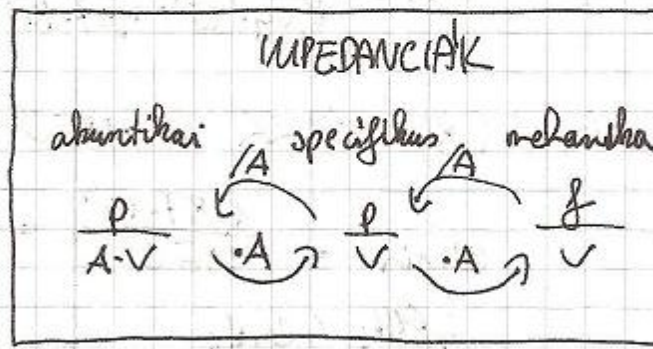 IMPEDANCIÁK
akusztikai specifikus mechanika
/A /A
p/(A·V) ·A p/V ·A f/V